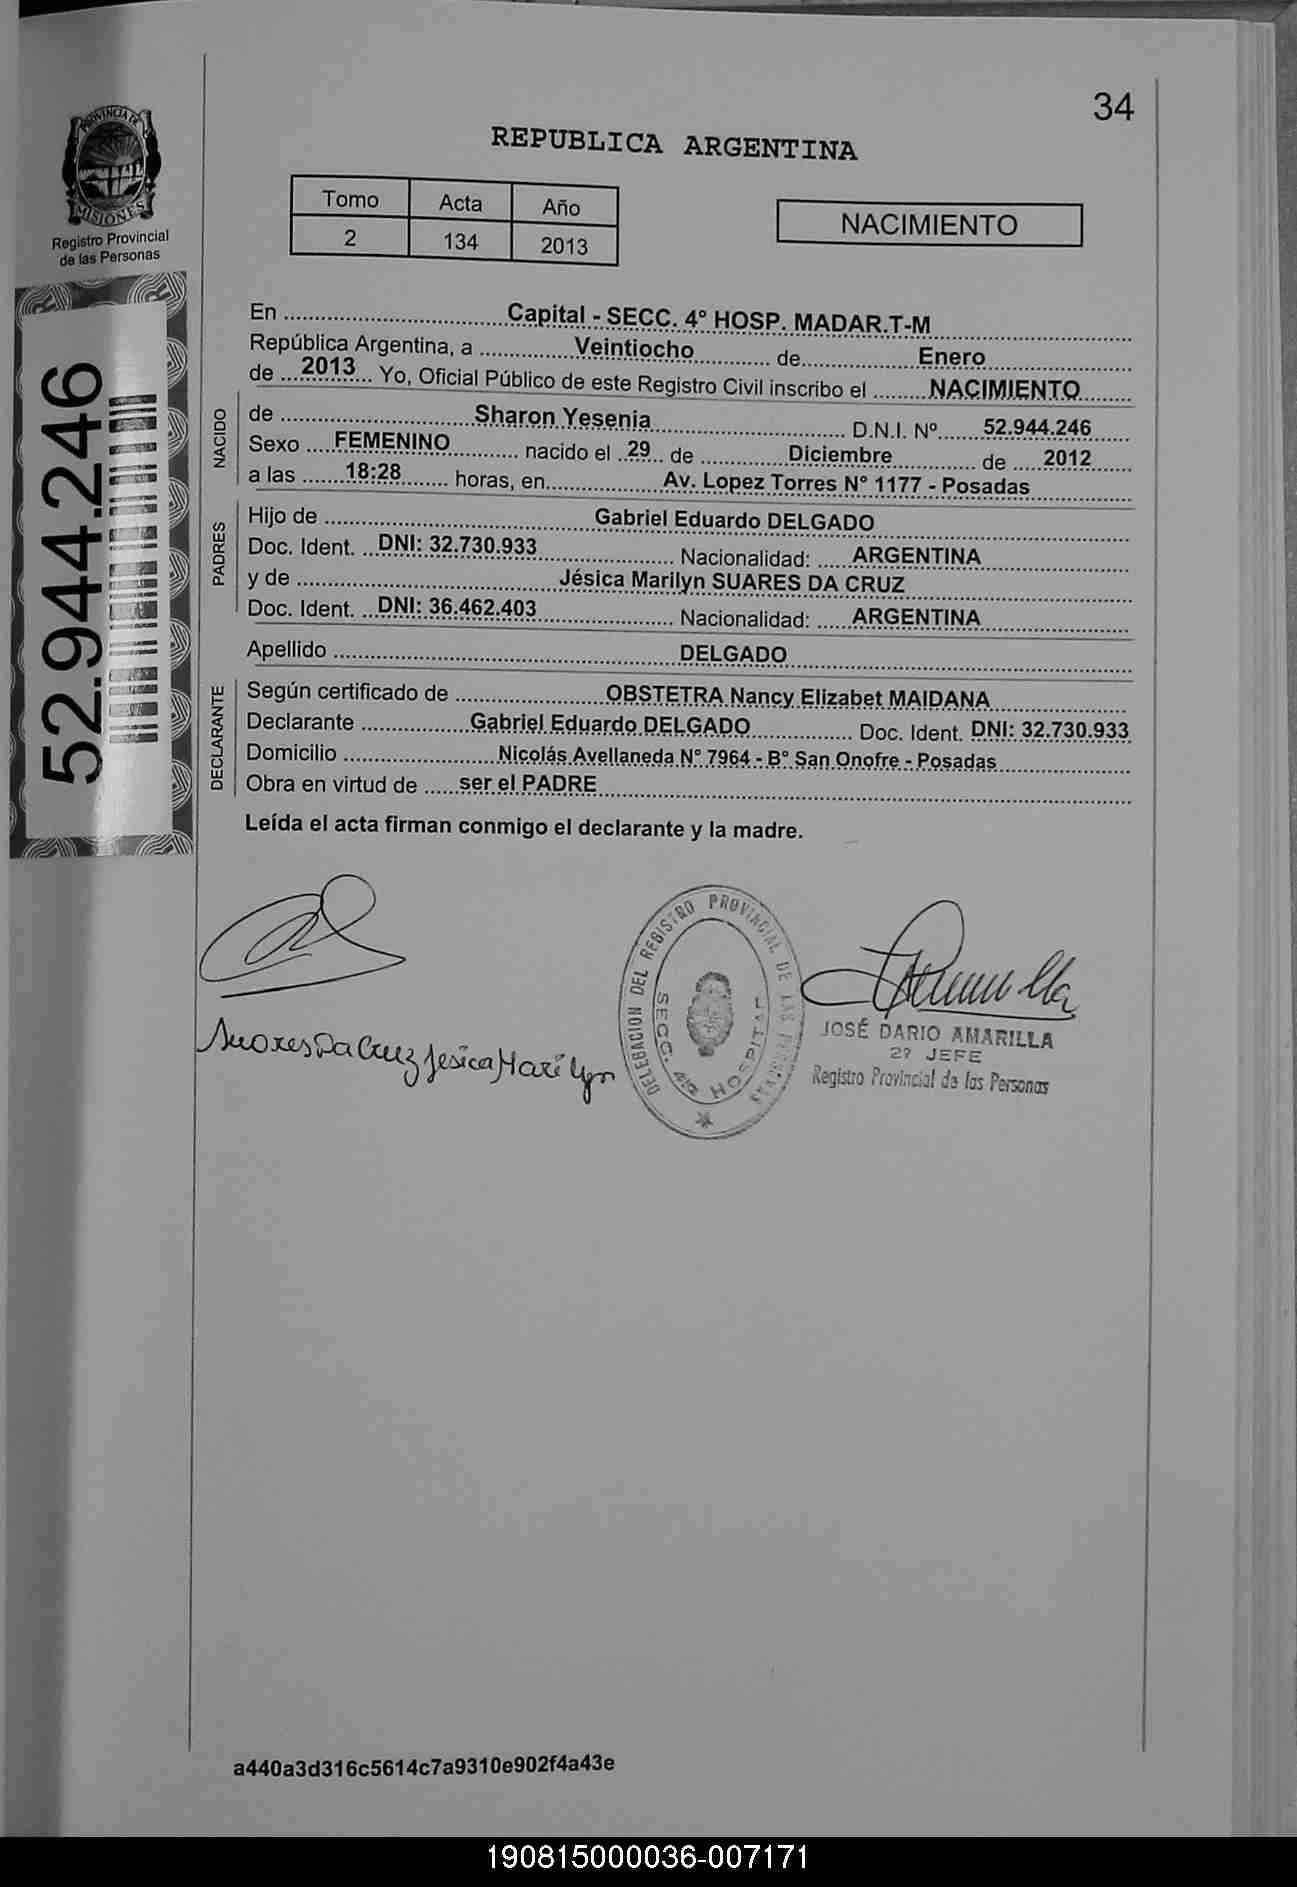 34
PROVINCIA DE
MISIONES
Registro Provincial
de las Personas
52.944.246
REPUBLICA ARGENTINA
Tomo Acta Año
2 134 2013
NACIMIENTO
En ................ Capital - SECC. 4° HOSP. MADAR.T-M
República Argentina, a ................ Veintiocho ................ de ................ Enero
de .... 2013 ... Yo, Oficial Público de este Registro Civil inscribo el ......... NACIMIENTO ........
NACIDO
de ................ Sharon Yesenia ................ D.N.I. Nº ....... 52.944.246 ......
Sexo .... FEMENINO ............ nacido el .. 29 .. de ............ Diciembre ............ de ..... 2012 ......
a las ....... 18:28 ........ horas, en ................ Av. Lopez Torres N° 1177 - Posadas ................
PADRES
Hijo de ................ Gabriel Eduardo DELGADO ................
Doc. Ident. ... DNI: 32.730.933 ................ Nacionalidad: ..... ARGENTINA ................
y de ................ Jésica Marilyn SUARES DA CRUZ ................
Doc. Ident. ... DNI: 36.462.403 ................ Nacionalidad: ..... ARGENTINA ................
Apellido ................ DELGADO ................
DECLARANTE
Según certificado de ................ OBSTETRA Nancy Elizabet MAIDANA ................
Declarante ................ Gabriel Eduardo DELGADO ................ Doc. Ident. DNI: 32.730.933
Domicilio ................ Nicolás Avellaneda N° 7964 - B° San Onofre - Posadas ................
Obra en virtud de ..... ser el PADRE ................
Leída el acta firman conmigo el declarante y la madre.
Suares Da Cruz Jesica Marilyn
DELEGACION DEL REGISTRO PROVINCIAL DE LAS PERSONAS
SECC. 4ta HOSPITAL
JOSÉ DARIO AMARILLA
2º JEFE
Registro Provincial de las Personas
a440a3d316c5614c7a9310e902f4a43e
190815000036-007171